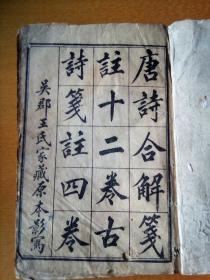 唐詩合解箋
註十二卷古
詩箋註四卷
吳郡王氏家藏原本影寫